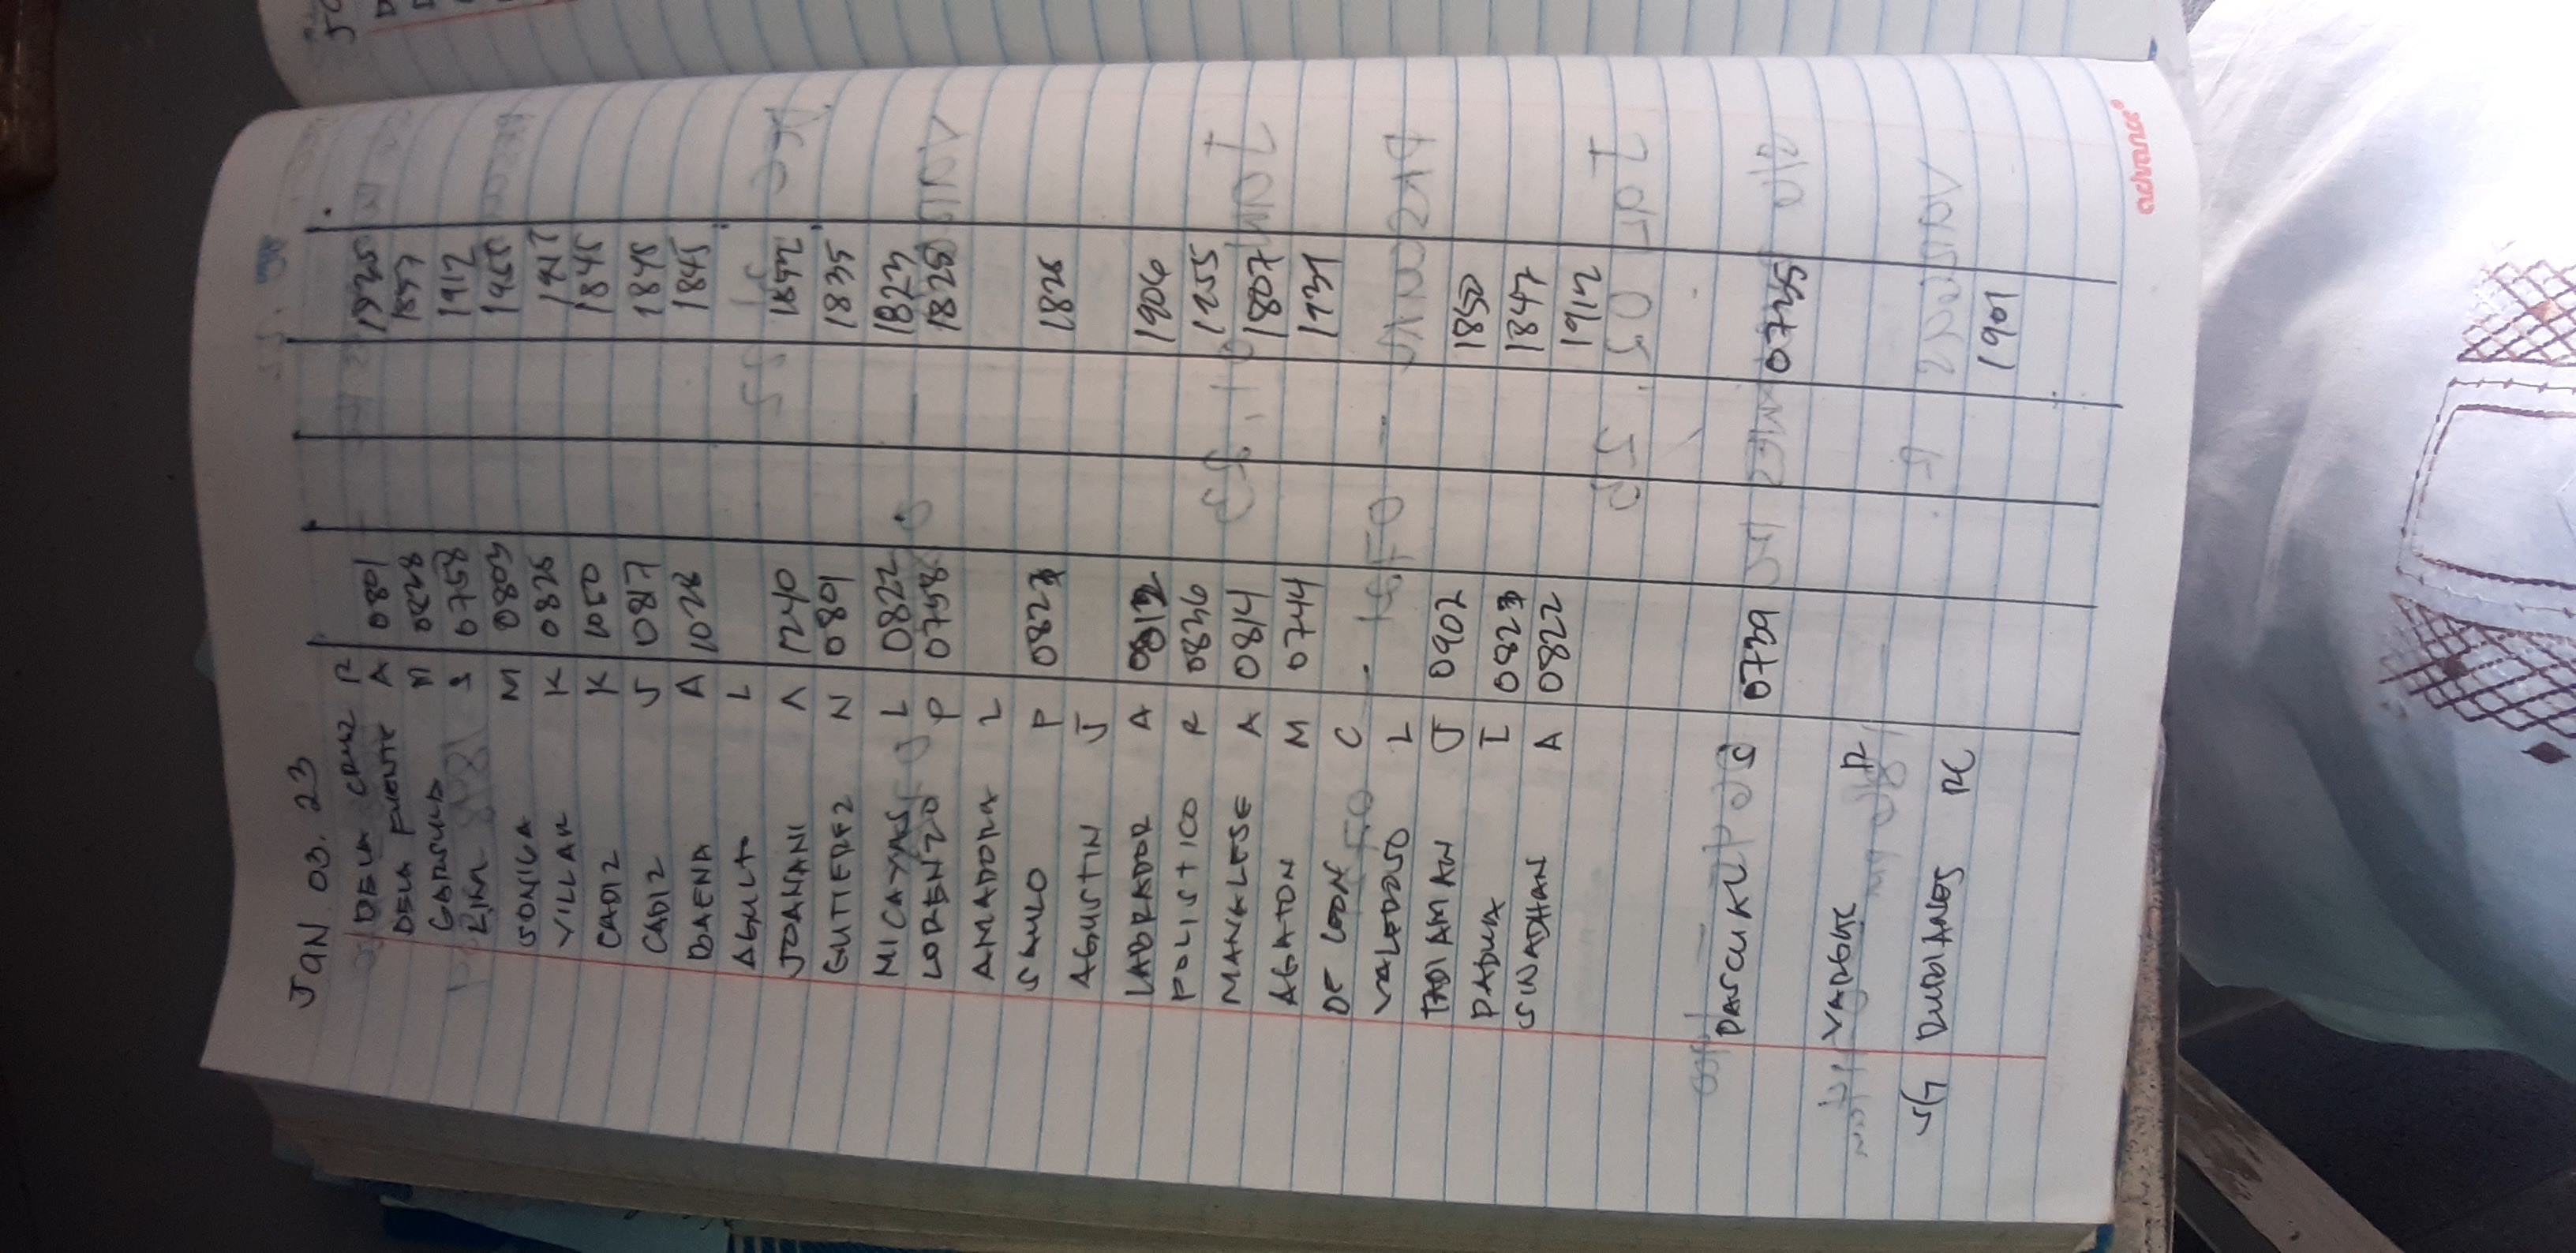 JAN 03. 23
DELA CRUZ R
DELA FUENTE A 0801 1835
GARSULA M 0828 1857
RIKA S 0758 1912
SONIGA M 0803
VILLAR K 0825 1917
CADIZ K 1050 1845
CADIZ J 0817 1845
BAENA A 1028 1845
AGULTO L
JOANANI A 1240 1852
GUTIEREZ N 0801 1835
MICAYAS L 0822 1823
LORENZO P 0758 1825
AMADORA L
SAULO P 0823 1825
AGUSTIN J
LABRADOR A 0812 1906
POLISTICO R 0836 1255
MANALESE A 0814 1807
AGATON M 0744 1731
DE LEON C
VALEROSO L
TADIAMAN J 0902 1850
PADUA I 0823 1847
SINADHAN A 0822 1912
PASCUAL S 0739 0735
VARGAS R
S/G RUBIANES RC 1901
advance